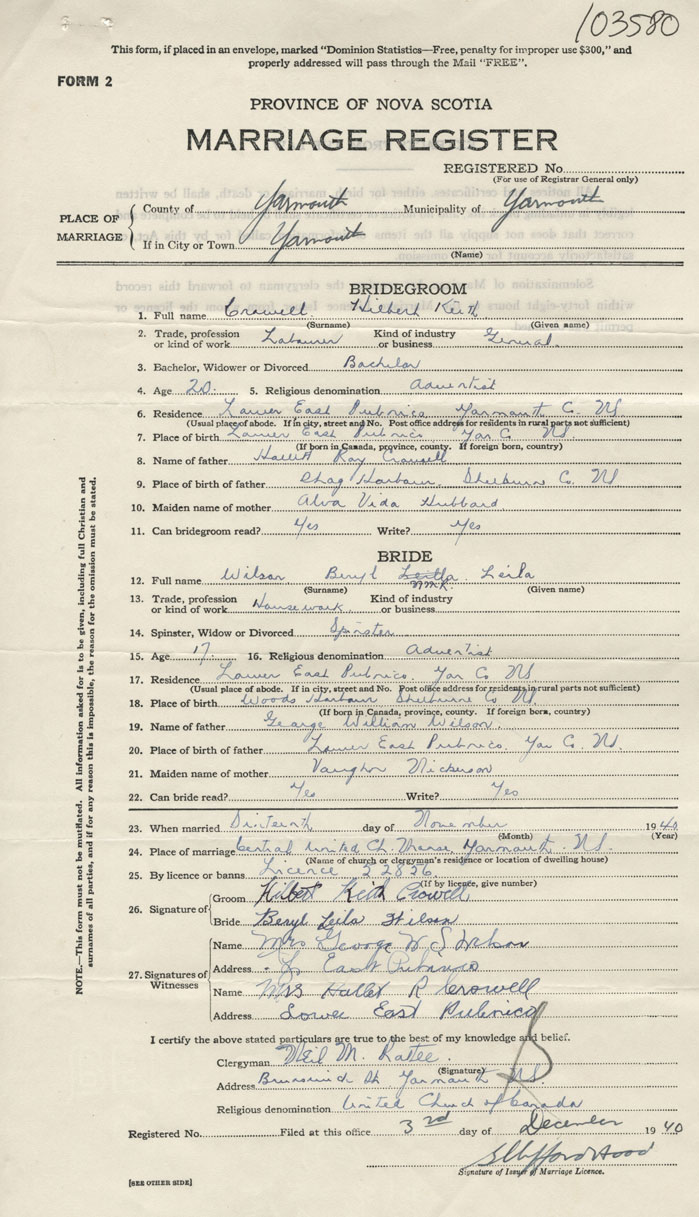 103580
This form, if placed in an envelope, marked "Dominion Statistics—Free, penalty for improper use $300," and
properly addressed will pass through the Mail "FREE".
FORM 2
PROVINCE OF NOVA SCOTIA
MARRIAGE REGISTER
REGISTERED No.
(For use of Registrar General only)
PLACE OF MARRIAGE
County of Yarmouth Municipality of Yarmouth
If in City or Town Yarmouth
(Name)
BRIDEGROOM
1. Full name Crowell Hilbert Keith
(Surname) (Given name)
2. Trade, profession or kind of work Labourer Kind of industry or business General
3. Bachelor, Widower or Divorced Bachelor
4. Age 20. 5. Religious denomination Adventist
6. Residence Lower East Pubnico Yarmouth C. NS
(Usual place of abode. If in city, street and No. Post office address for residents in rural parts not sufficient)
7. Place of birth Lower East Pubnico Yar C NS
(If born in Canada, province, county. If foreign born, country)
8. Name of father Hallett Ray Crowell
9. Place of birth of father Shag Harbour, Shelburn C. NS
10. Maiden name of mother Alva Vida Hubbard
11. Can bridegroom read? Yes Write? Yes
BRIDE
12. Full name Wilson Beryl Leila
(Surname) NMR. (Given name)
13. Trade, profession or kind of work Housework Kind of industry or business
14. Spinster, Widow or Divorced Spinster
15. Age 17 16. Religious denomination Adventist
17. Residence Lower East Pubnico. Yar Co NS
(Usual place of abode. If in city, street and No. Post office address for residents in rural parts not sufficient)
18. Place of birth Woods Harbour Shelburne C. NS
(If born in Canada, province, county. If foreign born, country)
19. Name of father George William Wilson.
20. Place of birth of father Lower East Pubnico. Yar Co. NS.
21. Maiden name of mother Vaughn Nickerson
22. Can bride read? Yes Write? Yes
23. When married Sixteenth day of November 1940
(Month) (Year)
24. Place of marriage Central United Ch. Manse, Yarmouth. NS.
(Name of church or clergyman's residence or location of dwelling house)
25. By licence or banns Licence 52826.
(If by licence, give number)
26. Signature of
Groom Hilbert Keith Crowell
Bride Beryl Leila Wilson
27. Signatures of Witnesses
Name Mrs George W Wilson
Address L. East Pubnico
Name Mrs Hallet R Crowell
Address Lower East Pubnico
I certify the above stated particulars are true to the best of my knowledge and belief.
Clergyman Neil M.
(Signature)
Address Brunswick St Yarmouth NS
Religious denomination United Church of Canada
Registered No. Filed at this office 3rd day of December 1940
S Clifford Hood
Signature of Issuer of Marriage Licence.
[SEE OTHER SIDE]
NOTE.—This form must not be mutilated. All information asked for is to be given, including full Christian and
surnames of all parties, and if for any reason this is impossible, the reason for the omission must be stated.